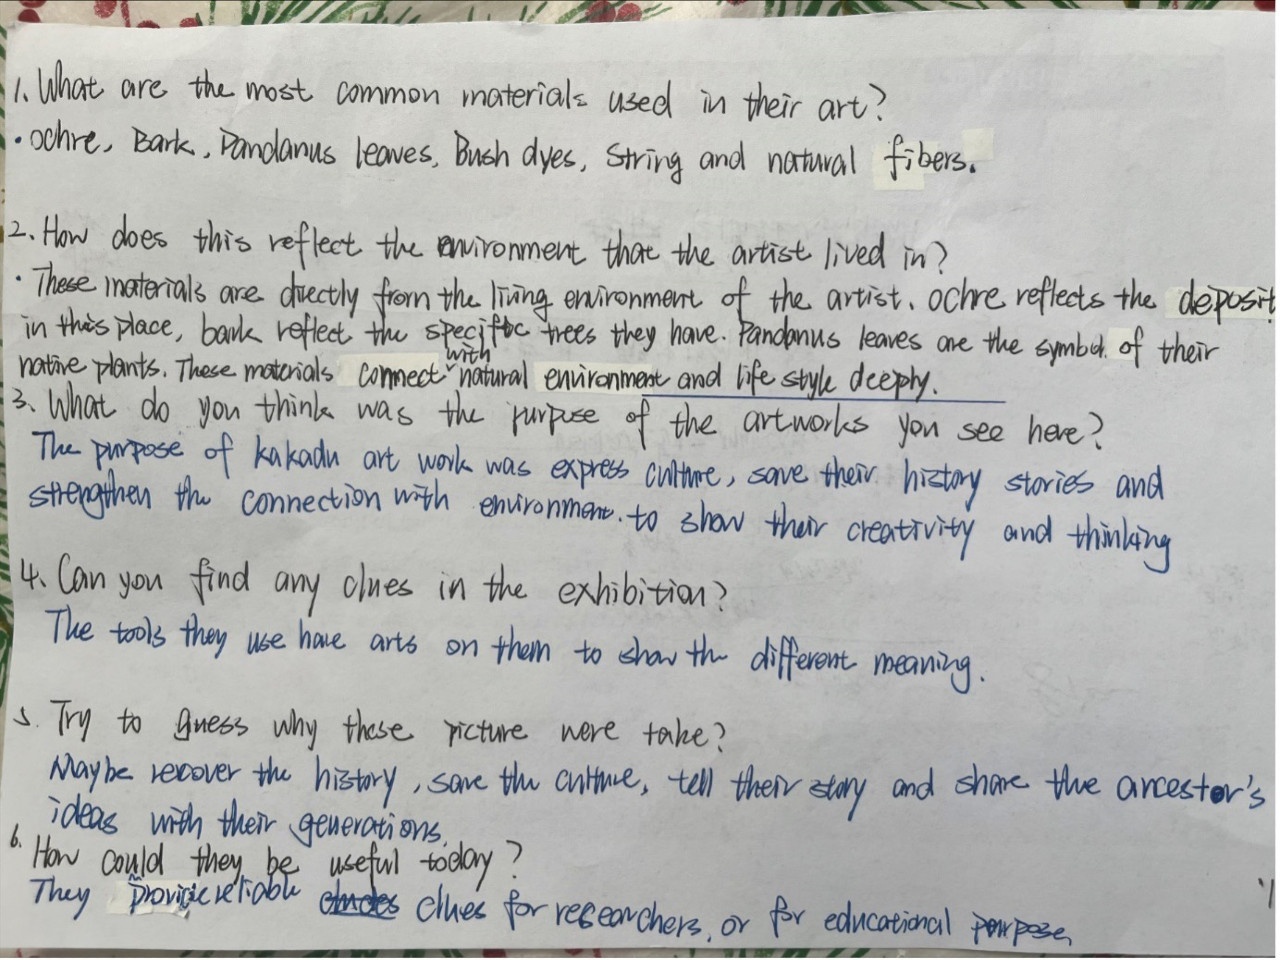 1. What are the most common materials used in their art?
· Ochre, Bark, Pandanus leaves, Bush dyes, String and natural fibers.
2. How does this reflect the environment that the artist lived in?
· These materials are directly from the living environment of the artist. Ochre reflects the deposit
in this place, bark reflect the specific trees they have. Pandanus leaves are the symbol of their
native plants. These materials connect with natural environment and life style deeply.
3. What do you think was the purpose of the artworks you see here?
The purpose of kakadu art work was express culture, save their history stories and
strengthen the connection with environment. to show their creativity and thinking
4. Can you find any clues in the exhibition?
The tools they use have arts on them to show the different meaning.
5. Try to guess why these picture were take?
Maybe recover the history, save the culture, tell their story and share the ancestor's
ideas with their generations.
6. How could they be useful today?
They provide reliable clues for researchers, or for educational purpose.